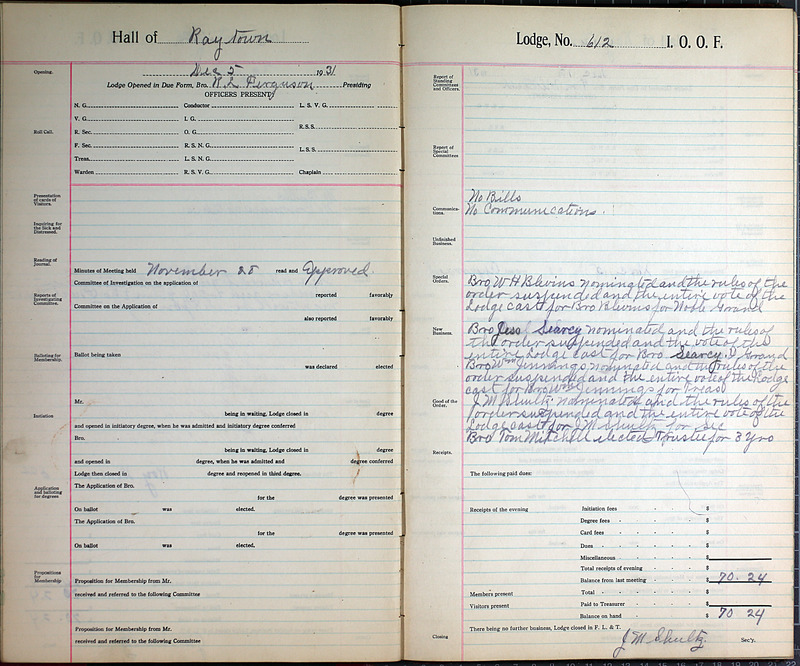 Hall of Raytown
Opening.
Dec 5 1931
Lodge Opened in Due Form, Bro. W L Ferguson Presiding
OFFICERS PRESENT
Roll Call.
N. G. Conductor L. S. V. G.
V. G. I. G.
R. S. S.
R. Sec. O. G.
F. Sec. R. S. N. G.
L. S. S.
Treas. L. S. N. G.
Warden R. S. V. G. Chaplain
Presentation of cards of Visitors.
Inquiring for the Sick and Distressed.
Reading of Journal.
Minutes of Meeting held November 28 read and Approved
Committee of Investigation on the application of
Reports of Investigating Committee.
reported favorably
Committee on the Application of
also reported favorably
Balloting for Membership.
Ballot being taken
was declared elected
Mr.
Initiation
being in waiting, Lodge closed in degree
and opened in initiatory degree, when he was admitted and initiatory degree conferred
Bro.
being in waiting, Lodge closed in degree
and opened in degree, when he was admitted and degree conferred
Lodge then closed in degree and reopened in third degree.
Application and balloting for degrees
The Application of Bro.
for the degree was presented
On ballot was elected.
The Application of Bro.
for the degree was presented
On ballot was elected.
Propositions for Membership
Proposition for Membership from Mr.
received and referred to the following Committee
Proposition for Membership from Mr.
received and referred to the following Committee
Lodge, No. 612 I. O. O. F.
Report of Standing Committees and Officers.
Report of Special Committees
No Bills
Communications.
No Communications.
Unfinished Business.
Special Orders.
Bro W H Blevins nominated and the rules of the
order suspended and the entire vote of the
Lodge cast for Bro Blevins for Noble Grand
New Business.
Bro Jess Searcy nominated and the rules of
the order suspended and the vote of the
entire Lodge cast for Bro Searcy V Grand
Bro Wm Jennings nominated and the rules of the
order suspended and the entire vote of the Lodge
cast for Bro Wm Jennings for Treas
Good of the Order.
J M Shultz nominated and the rules of the
order suspended and the entire vote of the
Lodge cast for J M Shultz for Sec
Bro Tom Mitchell elected Trustee for 3 yrs
Receipts.
The following paid dues:
Receipts of the evening Initiation fees $
Degree fees $
Card fees $
Dues $
Miscellaneous $
Total receipts of evening $
Balance from last meeting $ 70.24
Members present Total $
Visitors present Paid to Treasurer $
Balance on hand $ 70 24
There being no further business, Lodge closed in F. L. & T.
Closing
J M Shultz Sec'y.